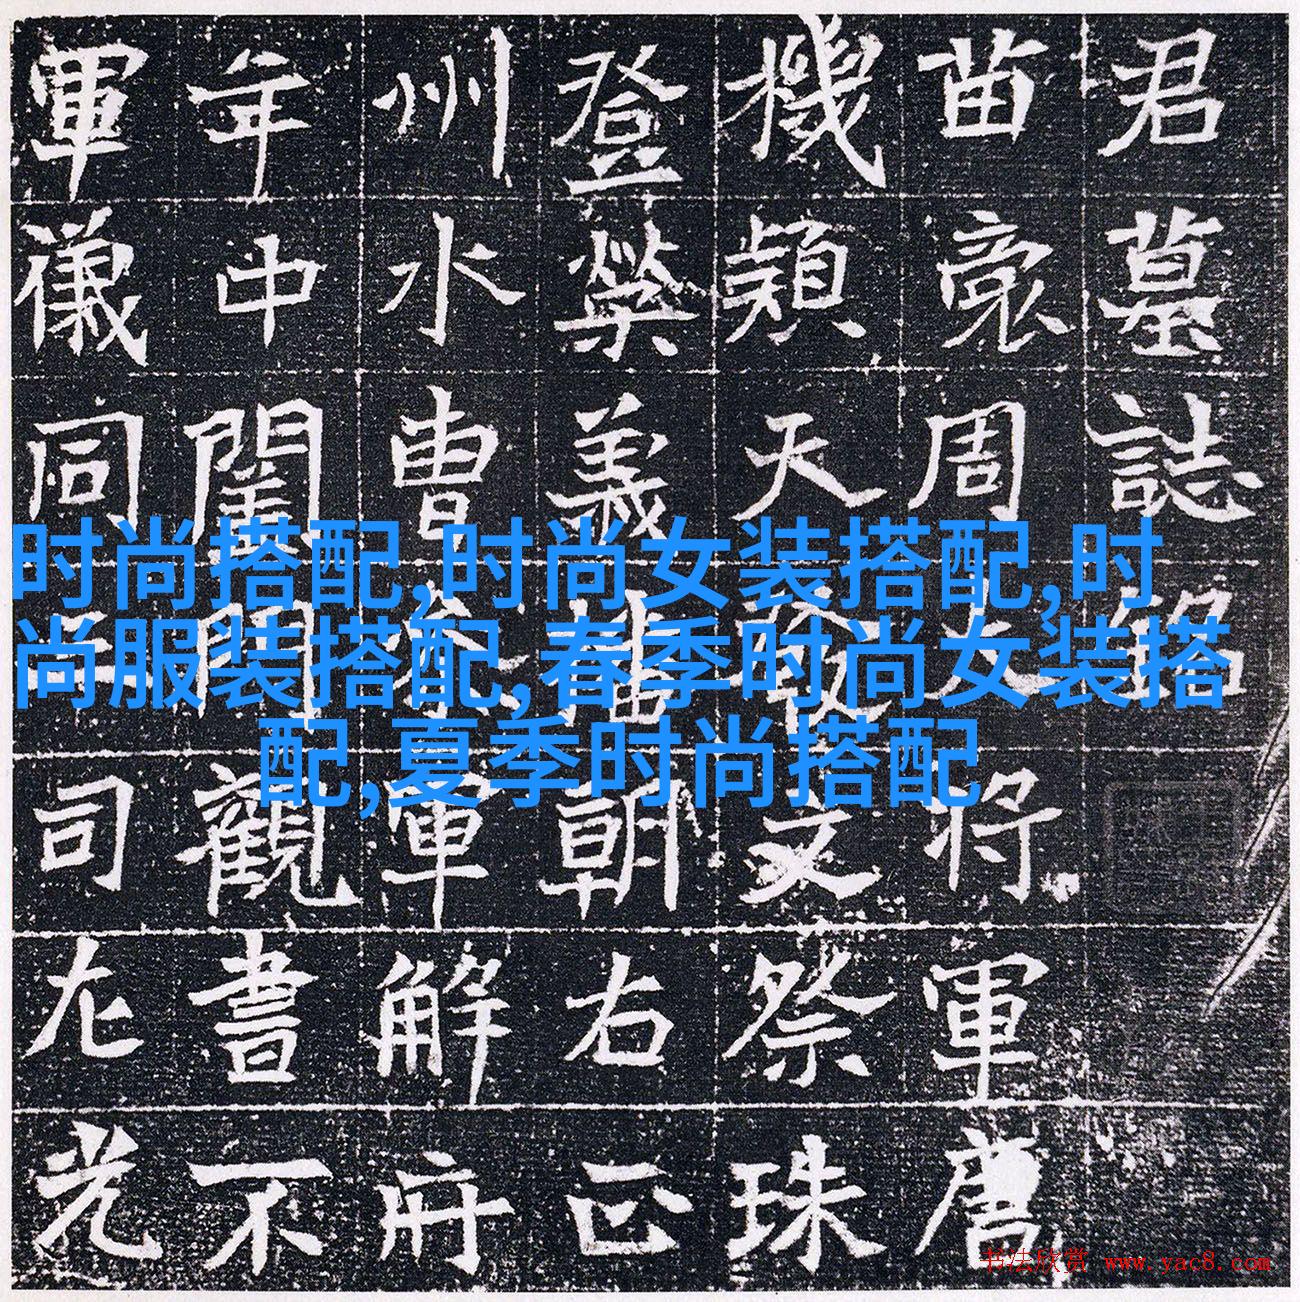 君墓誌銘
苗裔周大将軍唐
機穎天發文祭珠
登榮義播朝右正
州水曹叅軍解府
年中閨門觀書不
軍儀同三司左光
时尚搭配,时尚女装搭配,时
尚服装搭配,春季时尚女装搭
配,夏季时尚搭配
书法欣赏 www.yac8.com